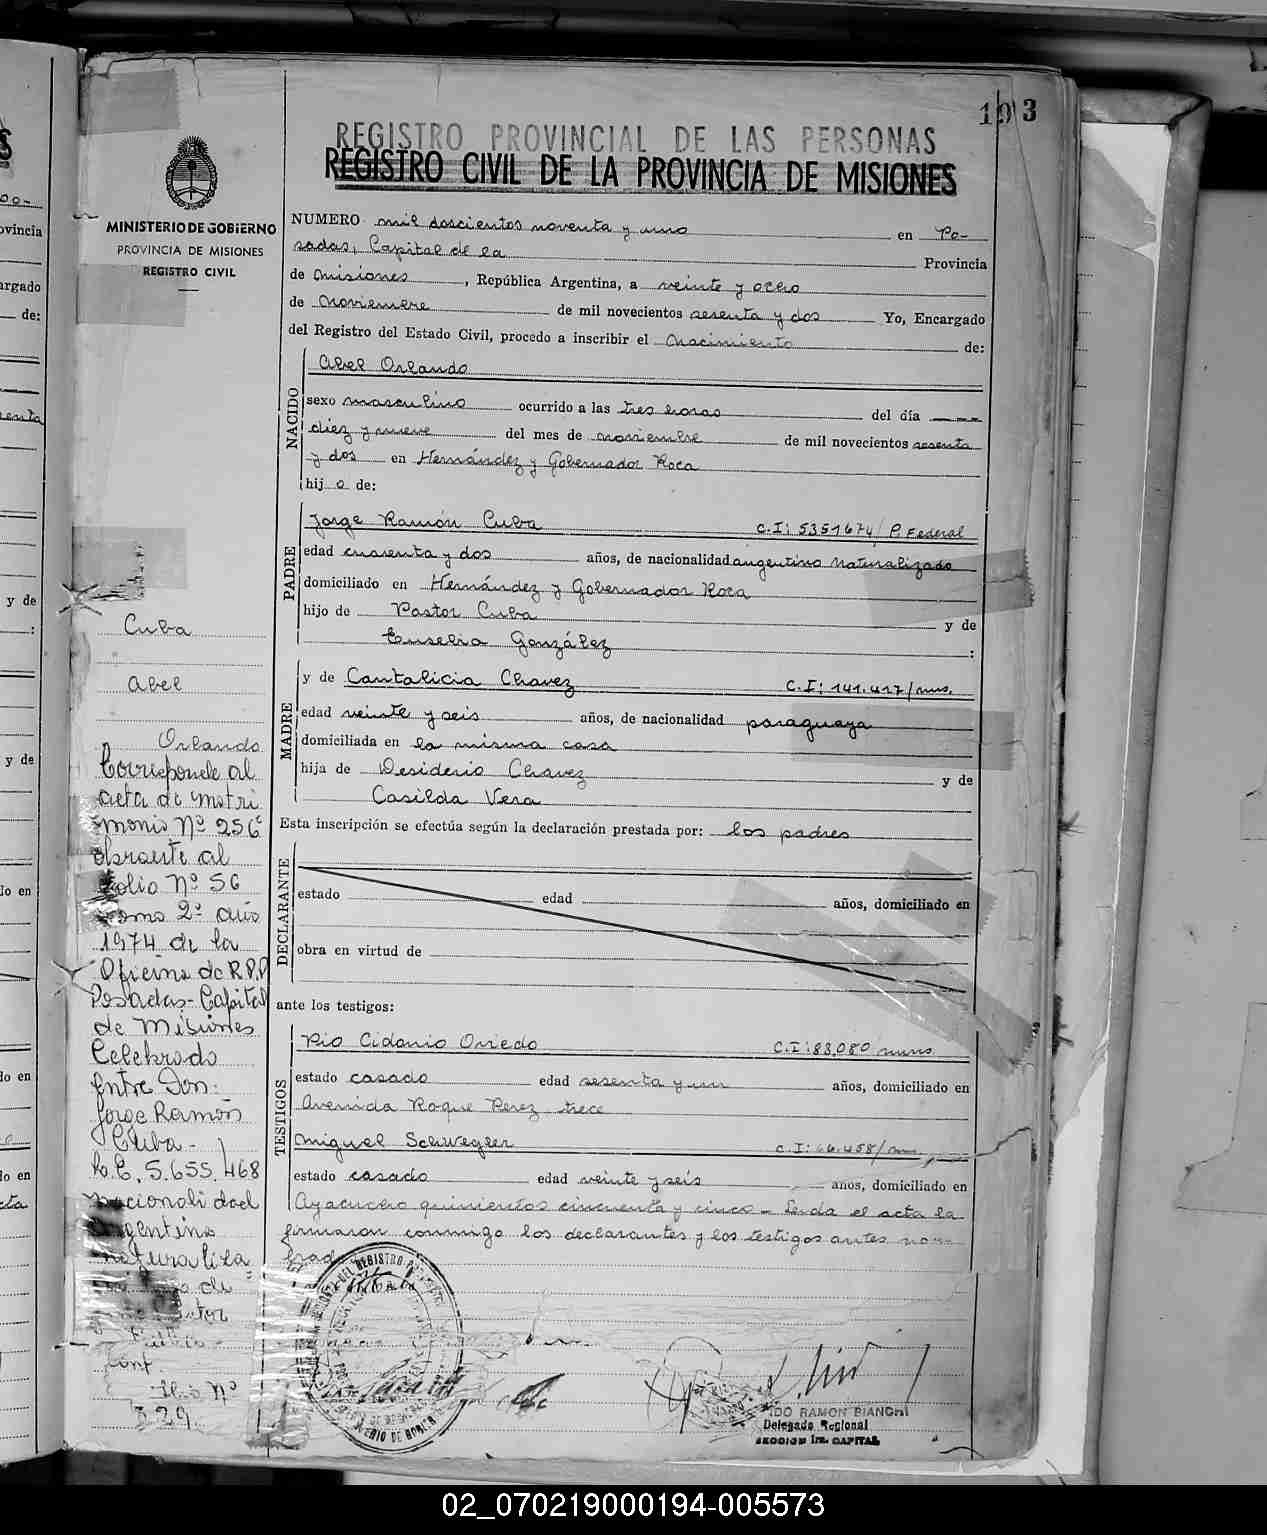 193
REGISTRO PROVINCIAL DE LAS PERSONAS
REGISTRO CIVIL DE LA PROVINCIA DE MISIONES
MINISTERIO DE GOBIERNO
PROVINCIA DE MISIONES
REGISTRO CIVIL
NUMERO mil doscientos noventa y uno en Po-
sadas, Capital de la Provincia
de Misiones, República Argentina, a veinte y ocho
de Noviembre de mil novecientos sesenta y dos Yo, Encargado
del Registro del Estado Civil, procedo a inscribir el Nacimiento de:
NACIDO
Abel Orlando
sexo masculino ocurrido a las tres horas del día
diez y nueve del mes de noviembre de mil novecientos sesenta
y dos en Hernández y Gobernador Roca
hijo de:
PADRE
Jorge Ramón Cuba C.I: 5351674/ P. Federal
edad cuarenta y dos años, de nacionalidad argentino Naturalizado
domiciliado en Hernández y Gobernador Roca
hijo de Pastor Cuba y de
Eusebia González :
MADRE
y de Cantalicia Chavez C.I: 141.417/mns.
edad veinte y seis años, de nacionalidad paraguaya
domiciliada en la misma casa
hija de Desiderio Chavez y de
Casilda Vera
Esta inscripción se efectúa según la declaración prestada por: los padres
DECLARANTE
estado edad años, domiciliado en
obra en virtud de
ante los testigos:
TESTIGOS
Pio Cidonio Oviedo C.I: 83.080 mns.
estado casado edad sesenta y un años, domiciliado en
Avenida Roque Perez trece
Miguel Schwegler C.I: 66.458/ mns.
estado casado edad veinte y seis años, domiciliado en
Ayacucho quinientos cincuenta y cinco - Leida el acta la
firmaron conmigo los declarantes y los testigos antes nom-
brad
Cuba
Abel
Orlando
Corresponde al
acta de matri
monio Nº 256
obrante al
folio Nº 56
tomo 2º año
1974 de la
Oficina de R.P.P
Posadas - Capital
de Misiones
Celebrado
entre Don:
Jorge Ramón
Cuba -
L.E. 5.655.468
nacionalidad
argentino
naturaliza
Público -
Conf.
Nº
329
IDO RAMON BIANCHI
Delegado Regional
SECCION 1ra. CAPITAL
02_070219000194-005573